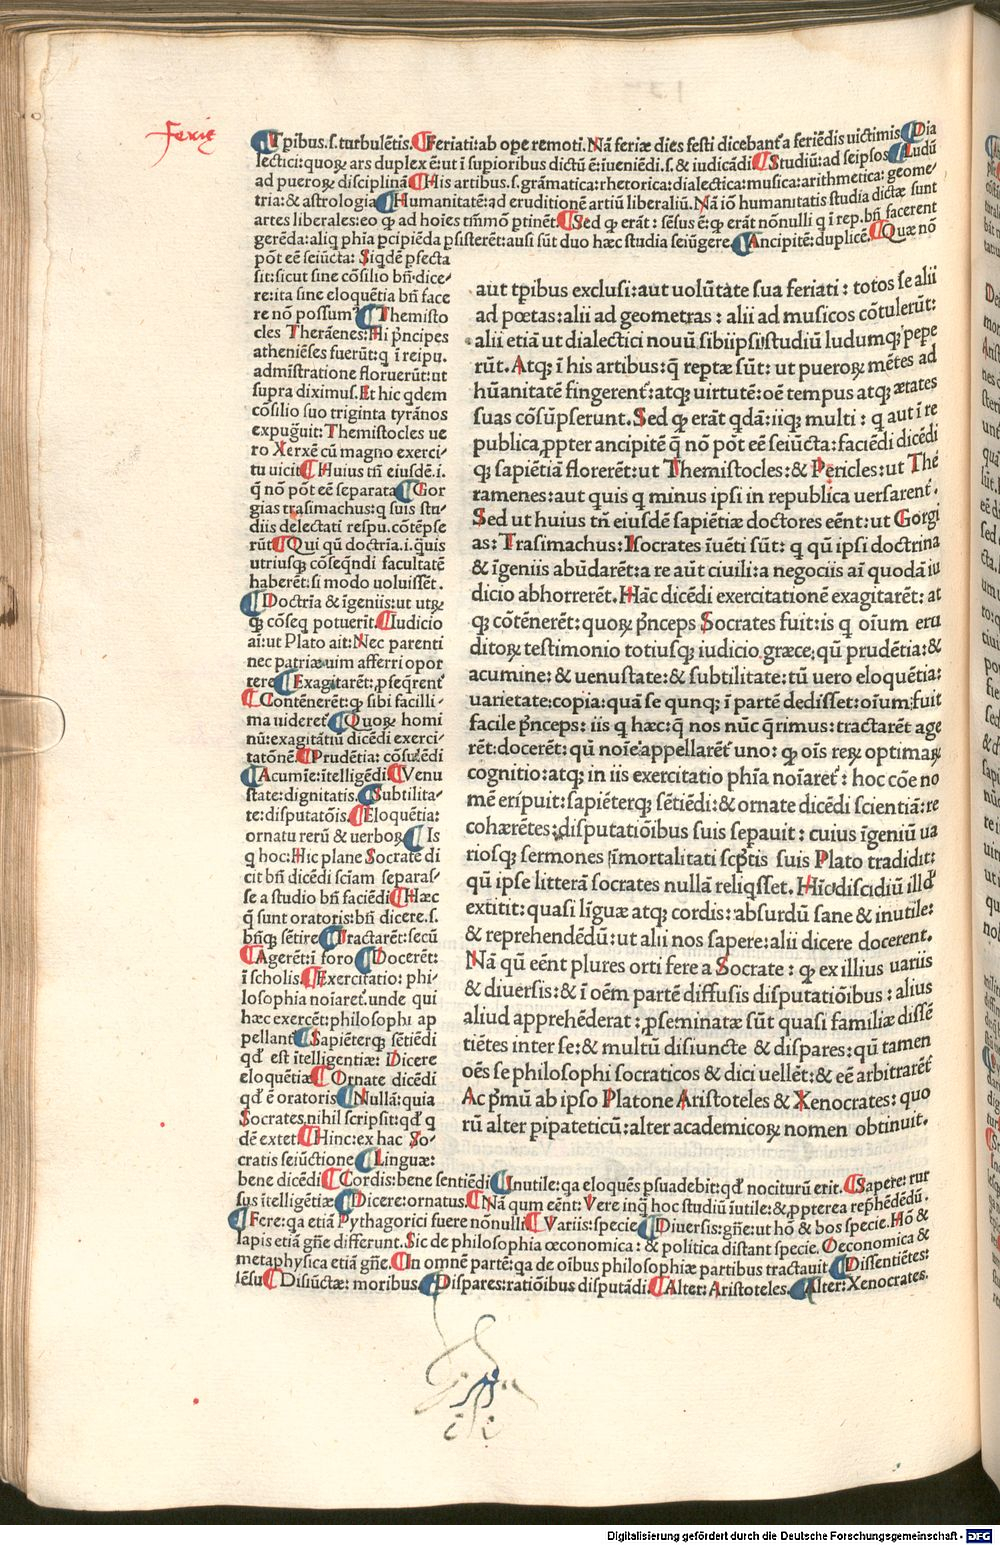 Ferię
¶ Tpibus.s.turbulētis. ¶ Feriati:ab ope remoti. Nā feriæ dies festi dicebant᷑ a feriēdis uictimis ¶ Dia
lectici:quoꝝ ars duplex ē:ut ī supioribus dictū ē:iueniēdi.s.& iudicādi ¶ Studiū:ad seipsos ¶ Ludū
ad pueroꝝ disciplinā ¶ His artibus.s.grāmatica:rhetorica:dialectica:musica:arithmetica:geome⸗
tria:& astrologia ¶ Humanitatē:ad eruditionē artiū liberaliū. Nā iō humanitatis studia dictæ sunt
artes liberales:eo ꝙ ad hoīes tm̄mō ꝑtinēt. ¶ Sed ꝙ erāt : sēsus ē:ꝙ erāt nōnulli q ī rep. bn̄ facerent
gerēda:aliq phīa pcipiēda psisterēt:ausi sūt duo hæc studia seiūgere. ¶ Ancipitē:duplicē. ¶ Quæ nō
pōt eē seiūcta: Siqdē pfecta
sit:sicut sine cōsilio bn̄ dice⸗
re:ita sine eloquētia bn̄ face
re nō possum᷑ ¶ Themisto
cles Therāenes:Hi p̄ncipes
atheniēses fuerūt:q ī reipu.
admīstratione floruerūt:ut
supra diximus. Et hic qdem
cōsilio suo triginta tyrānos
expugūit: Themistocles ue
ro Xerxē cū magno exerci⸗
tu uicit ¶ Huius tn̄ eiusdē.i.
q̄ nō pōt eē separata ¶ Gor
gias trasimachus:q suis stu⸗
diis delectati respu.cōtēpse
rūt ¶ Qui qū doctrīa.i.quis
utriusqꝫ cōseqndi facultatē
haberēt:si modo uoluissēt.
¶ Doctrīa & īgeniis:ut utrꝝ
qꝫ cōseq potuerit. ¶ Iudicio
ai:ut Plato ait: Nec parenti
nec patriæ uim afferri opor
tere ¶ Exagitarēt:ꝓseqrent᷑
¶ Contēnerēt:ꝙ sibi facilli⸗
ma uideret᷑ ¶ Quoꝝ homi
nū:exagitātiū dicēdi exerci⸗
tatōnē. ¶ Prudētia: cōsulēdi
¶ Acumīe:ītelligēdi ¶ Venu
state:dignitatis. ¶ Subtilita⸗
te:disputatōis. ¶ Eloquētia:
ornatu rerū & uerboꝝ ¶ Is
q hoc:Hic plane Socrate di
cit bn̄ dicēdi sciam separas⸗
se a studio bn̄ faciēdi ¶ Hæc
q̄ sunt oratoris:bn̄ dicere.s.
bn̄qꝫ sētire ¶ Tractarēt:secū
¶ Agerēt:ī foro ¶ Docerēt:
ī scholis. ¶ Exercitatio: phi⸗
losophia noīaret᷑.unde qui
hæc exercēt:philosophi ap
pellant᷑ ¶ Sapiēterqꝫ sētiēdi
qd᷑ est ītelligentiæ: Dicere
eloquētiæ ¶ Ornate dicēdi
qd᷑ ē oratoris ¶ Nullā:quia
Socrates nihil scripsit:qd᷑ q
dē extet ¶ Hinc:ex hac So⸗
cratis seiūctione ¶ Linguæ:
aut tpibus exclusi:aut uolūtate sua feriati : totos se alii
ad poetas:alii ad geometras : alii ad musicos cōtulerūt:
alii etiā ut dialectici nouū sibiipsi studiū ludumqꝫ pepe
rūt. Atqꝫ ī his artibus:q̄ reptæ sūt: ut pueroꝝ mētes ad
hūanitatē fingerent᷑:atqꝫ uirtutē:oē tempus atqꝫ ætates
suas cōsūpserunt. Sed ꝙ erāt qdā:iiqꝫ multi : q aut ī re
publica ꝓpter ancipitē q̄ nō pōt eē seiūcta:faciēdi dicēdi
qꝫ sapiētiā florerēt:ut Themistocles:& Pericles:ut Thē
ramenes:aut quis q minus ipsi in republica uersarent᷑.
Sed ut huius tn̄ eiusdē sapiētiæ doctores eēnt:ut Gorgi
as: Trasimachus: Isocrates īuēti sūt: q qū ipsi doctrina
& īgeniis abūdarēt:a re aūt ciuili:a negociis aī quodā iu
dicio abhorrerēt. Hāc dicēdi exercitationē exagitarēt: at
qꝫ cōtēnerēt:quoꝝ p̄nceps Socrates fuit:is q oīum eru
ditoꝝ testimonio totiusqꝫ iudicio græce:qū prudētia:&
acumine:& uenustate:& subtilitate:tū uero eloquētia:
uarietate:copia:quā se qunqꝫ ī partē dedisset:oīum:fuit
facile p̄nceps: iis q hæc:q̄ nos nūc q̄rimus:tractarēt age
rēt:docerēt:qū noīe appellarēt᷑ uno: ꝙ oīs reꝝ optimaꝝ
cognitio:atqꝫ in iis exercitatio phīa noīaret᷑ : hoc cōe no
mē eripuit:sapiēterqꝫ sētiēdi:& ornate dicēdi scientiā:re
cohærētes:disputatiōibus suis sepauit : cuius īgeniū ua
riosqꝫ sermones īmortalitati sc̄ptis suis Plato tradidit:
qū ipse litterā socrates nullā reliqsset. Hīc discidiū illd᷑
extitit:quasi līguæ atqꝫ cordis:absurdū sane & inutile:
& reprehendēdū:ut alii nos sapere:alii dicere docerent.
Nā qū eēnt plures orti fere a Socrate : ꝙ ex illius uariis
& diuersis:& ī oēm partē diffusis disputatiōibus : alius
aliud apprehēderat : ꝓseminatæ sūt quasi familiæ dissē
tiētes inter se:& multū disiuncte & dispares:qū tamen
oēs se philosophi socraticos & dici uellēt:& eē arbitrarēt᷑
Ac p̄mū ab ipso Platone Aristoteles & Xenocrates: quo
rū alter pipateticū:alter academicoꝝ nomen obtinuit.
bene dicēdi ¶ Cordis:bene sentiēdi ¶ Inutile:qa eloquēs psuadebit:qd᷑ nociturū erit. ¶ Sapere: rur
sus ītelligētiæ ¶ Dicere:ornatus. ¶ Nā qum eēnt: Vere inq hoc studiū iutile:&ꝓpterea rep̄hēdēdū.
¶ Fere:qa etiā Pythagorici fuere nōnulli ¶ Variis:specie ¶ Diuersis:gn̄e:ut hō & bos specie. Hō &
lapis etiā gn̄e differunt. Sic de philosophia œconomica : & politica distant specie. Oeconomica &
metaphysica etiā gn̄e. ¶ In omnē partē:qa de oībus philosophiæ partibus tractauit ¶ Dissentiētes:
sēsu ¶ Disiūctæ: moribus. ¶ Dispares:ratiōibus disputādi. ¶ Alter: Aristoteles. ¶ Alter: Xenocrates.
Digitalisierung gefördert durch die Deutsche Forschungsgemeinschaft - DFG